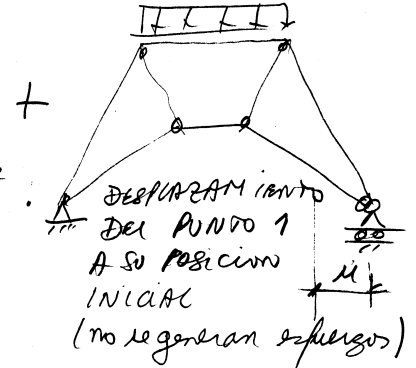 +
DESPLAZAMIENTO
DEL PUNTO 1
A SU POSICION
INICIAL
u
(no se generan esfuerzos)